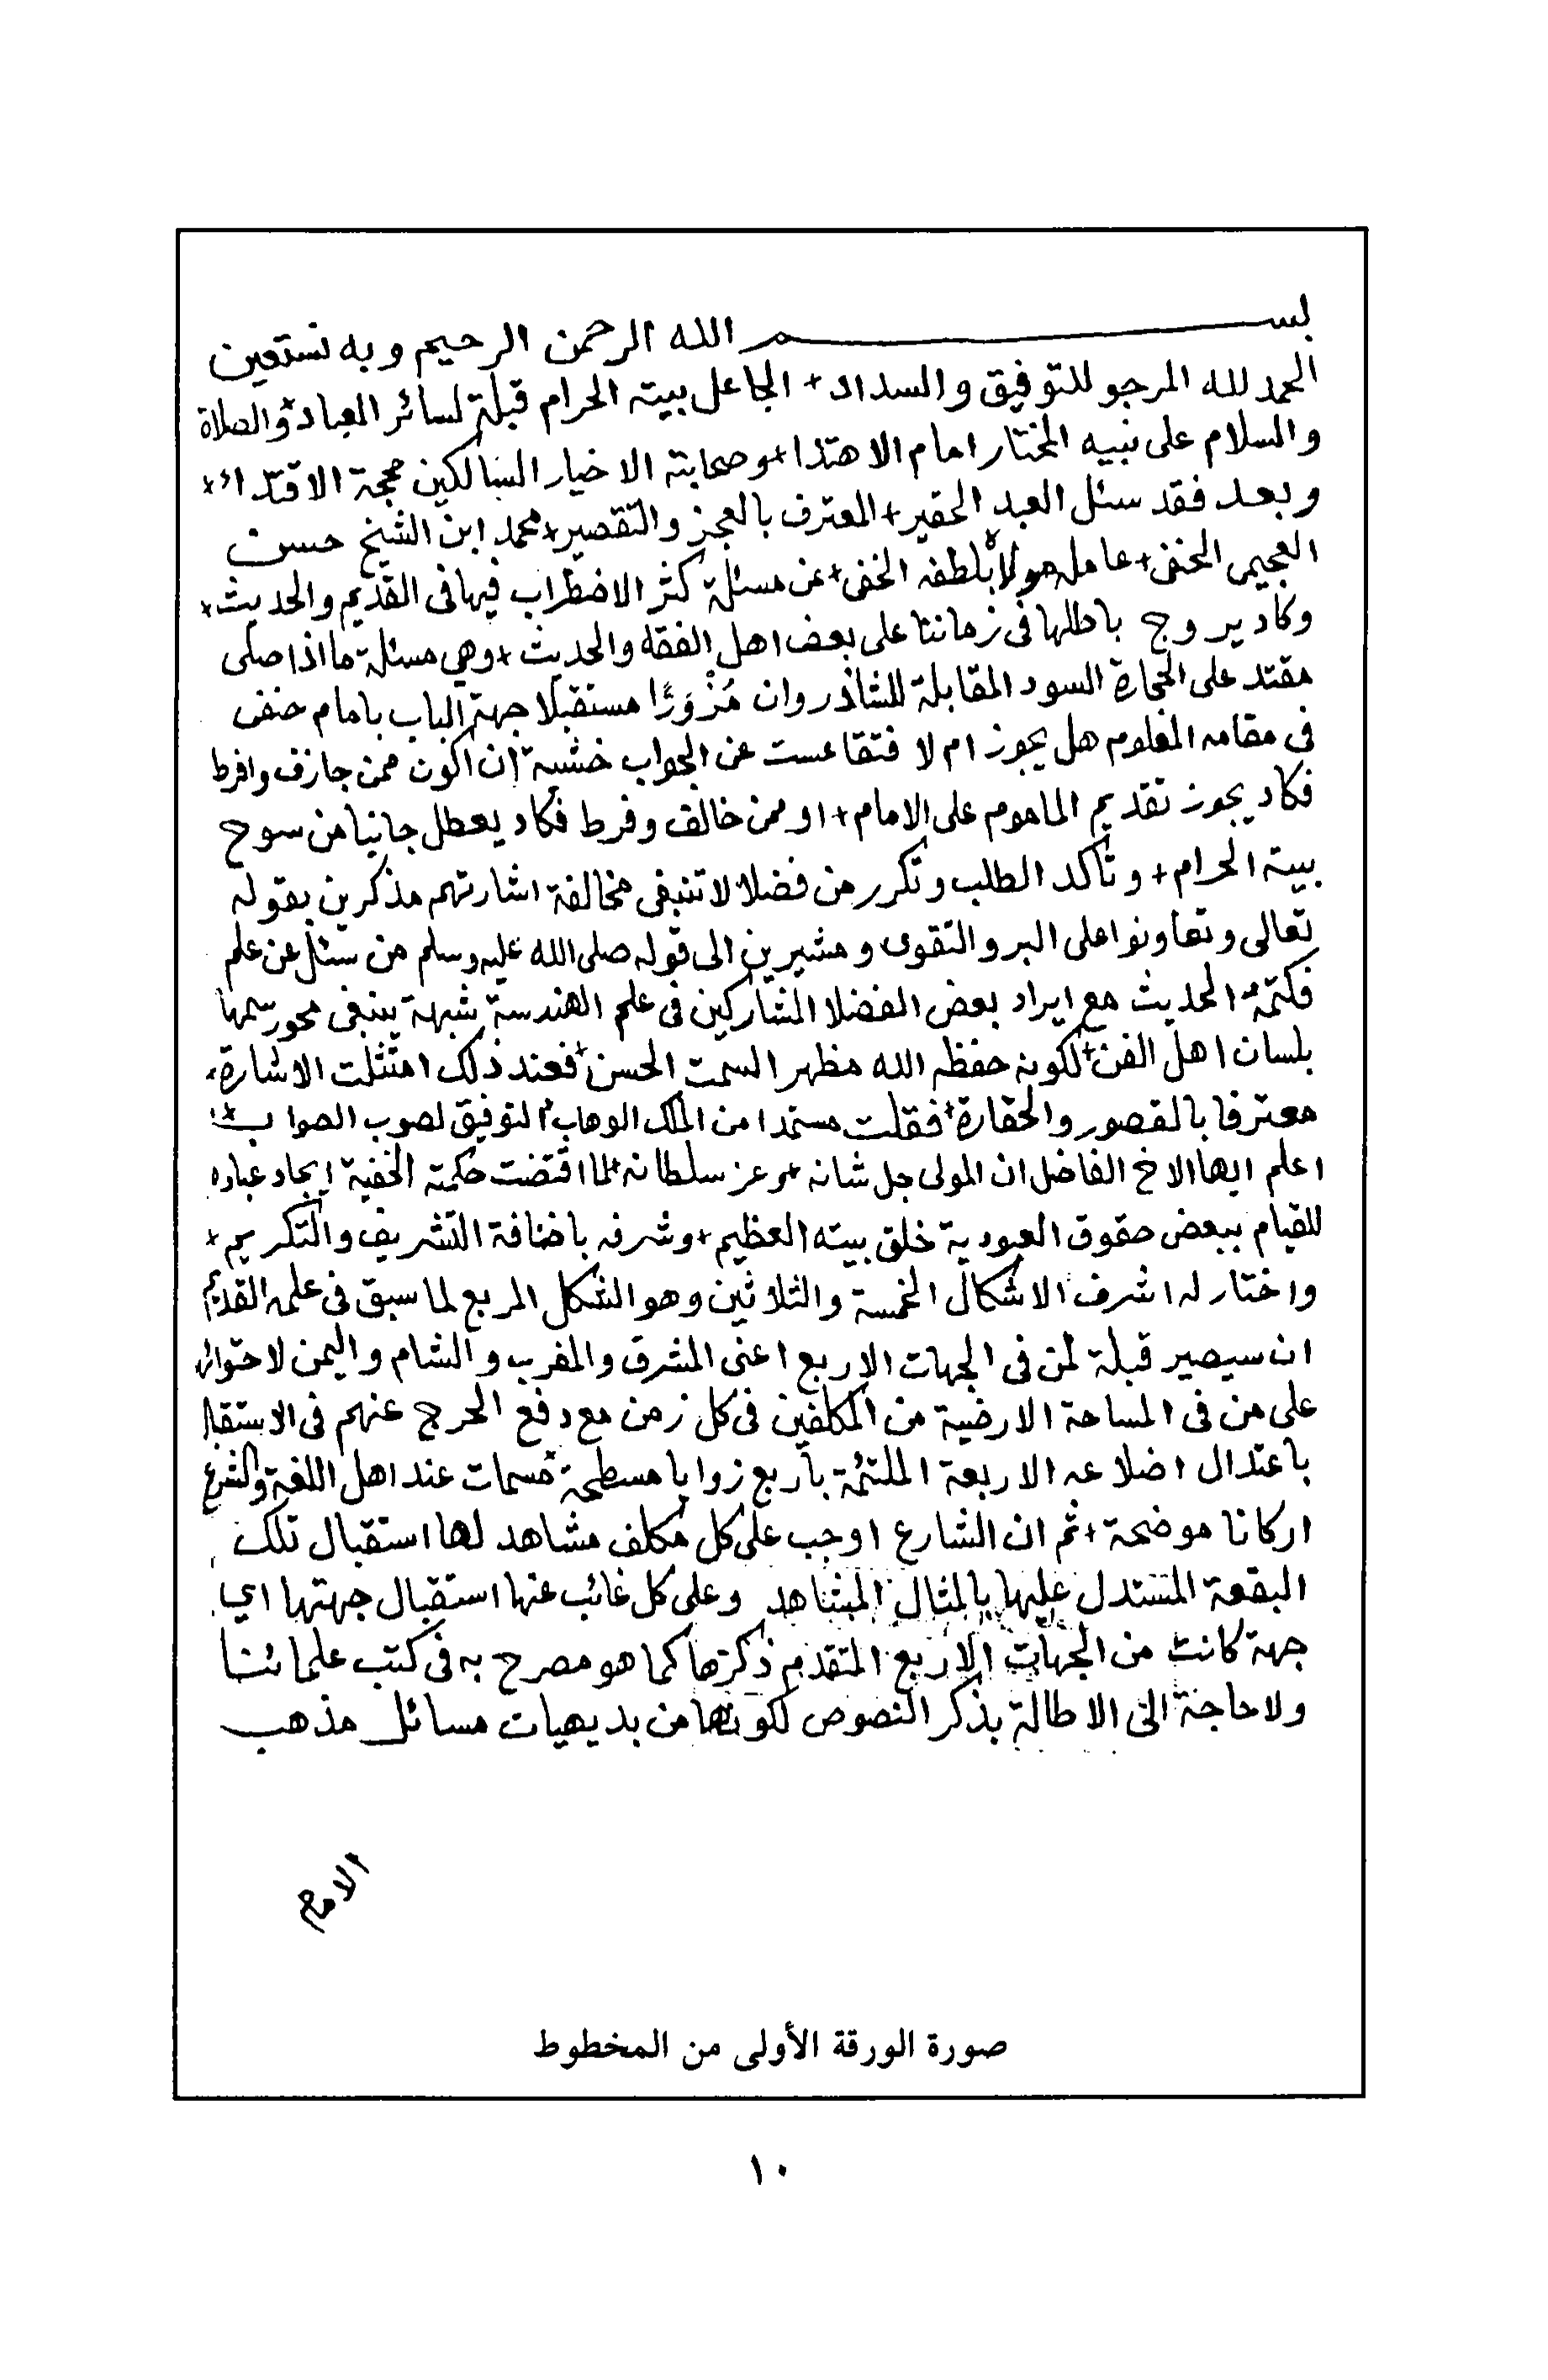 بسم الله الرحمن الرحيم وبه نستعين
الحمد لله المرجو للتوفيق والسداد + الجاعل بيته الحرام قبلة لسائر العباد + والصلاة
والسلام على نبيه المختار امام الاهتدا + وصحابته الاخيار السالكين محجة الاقتداء +
وبعد فقد سئل العبد الحقير + المعترف بالعجز والتقصير + محمد ابن الشيخ حسن
العجيمى الحنفى + عامله مولاه بلطفه الخفى + عن مسئلة كثر الاضطراب فيها فى القديم والحديث +
وكاد يروج باطلها فى زماننا على بعض اهل الفقه والحديث + وهي مسئلة ما اذا صلى
مقتد على الحجارة السود المقابلة للشاذروان مُزْوَرًّا مستقبلا جهة الباب بامام حنفى
فى مقامه المعلوم هل يجوز ام لا فتقاعست عن الجواب خشية ان اكون ممن جازف وافرط
فكاد يجوز تقديم الماموم على الامام + او ممن خالف وفرط فكاد يعطل جانبا من سوح
بيته الحرام + وتاكد الطلب وتكرر من فضلا لا تنبغى مخالفة اشارتهم مذكرين بقوله
تعالى وتعاونوا على البر والتقوى ومشيرين الى قوله صلى الله عليه وسلم من سئل عن علم
فكتمه الحديث مع ايراد بعض الفضلا المشاركين فى علم الهندسة شبهة ينبغى محو رسمها
بلسان اهل الفن + لكونه حفظه الله مظهر السمت الحسن + فعند ذلك امتثلت الاشارة +
معترفا بالقصور والحقارة + فقلت مستمدا من الملك الوهاب + التوفيق لصوب الصواب +
اعلم ايها الاخ الفاضل ان المولى جل شانه + وعز سلطانه + لما اقتضت حكمته الخفية ايجاد عباده
للقيام ببعض حقوق العبودية خلق بيته العظيم + وشرفه باضافة التشريف والتكريم +
واختار له اشرف الاشكال الخمسة والثلاثين وهو الشكل المربع لما سبق فى علمه القديم
ان سيصير قبلة لمن فى الجهات الاربع اعنى المشرق والمغرب والشام واليمن لاحتوائه
على من فى المساحة الارضية من المكلفين فى كل زمن مع دفع الحرج عنهم فى الاستقبال
باعتدال اضلاعه الاربعة الملتئمة باربع زوايا مسطحة مسمات عند اهل اللغة والشرع
اركانا موضحة + ثم ان الشارع اوجب على كل مكلف مشاهد لها استقبال تلك
البقعة المستدل عليها بالمثال المشاهد وعلى كل غائب عنها استقبال جهتها اي
جهة كانت من الجهات الاربع المتقدم ذكرها كما هو مصرح به فى كتب علمائنا
ولا حاجة الى الاطالة بذكر النصوص لكونها من بديهيات مسائل مذهب
الامام
صورة الورقة الأولى من المخطوط
١٠